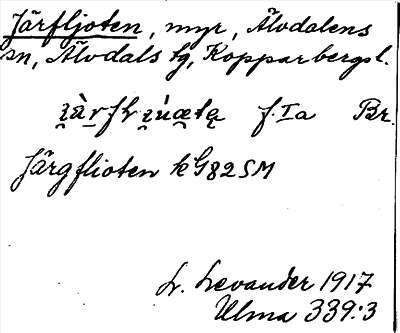 Järfljoten, myr, Älvdalens
sn, Älvdals tg, Kopparbergs l.
f. Ia Br.
Järgflioten k G82 SM
L. Levander 1917
Ulma 339:3